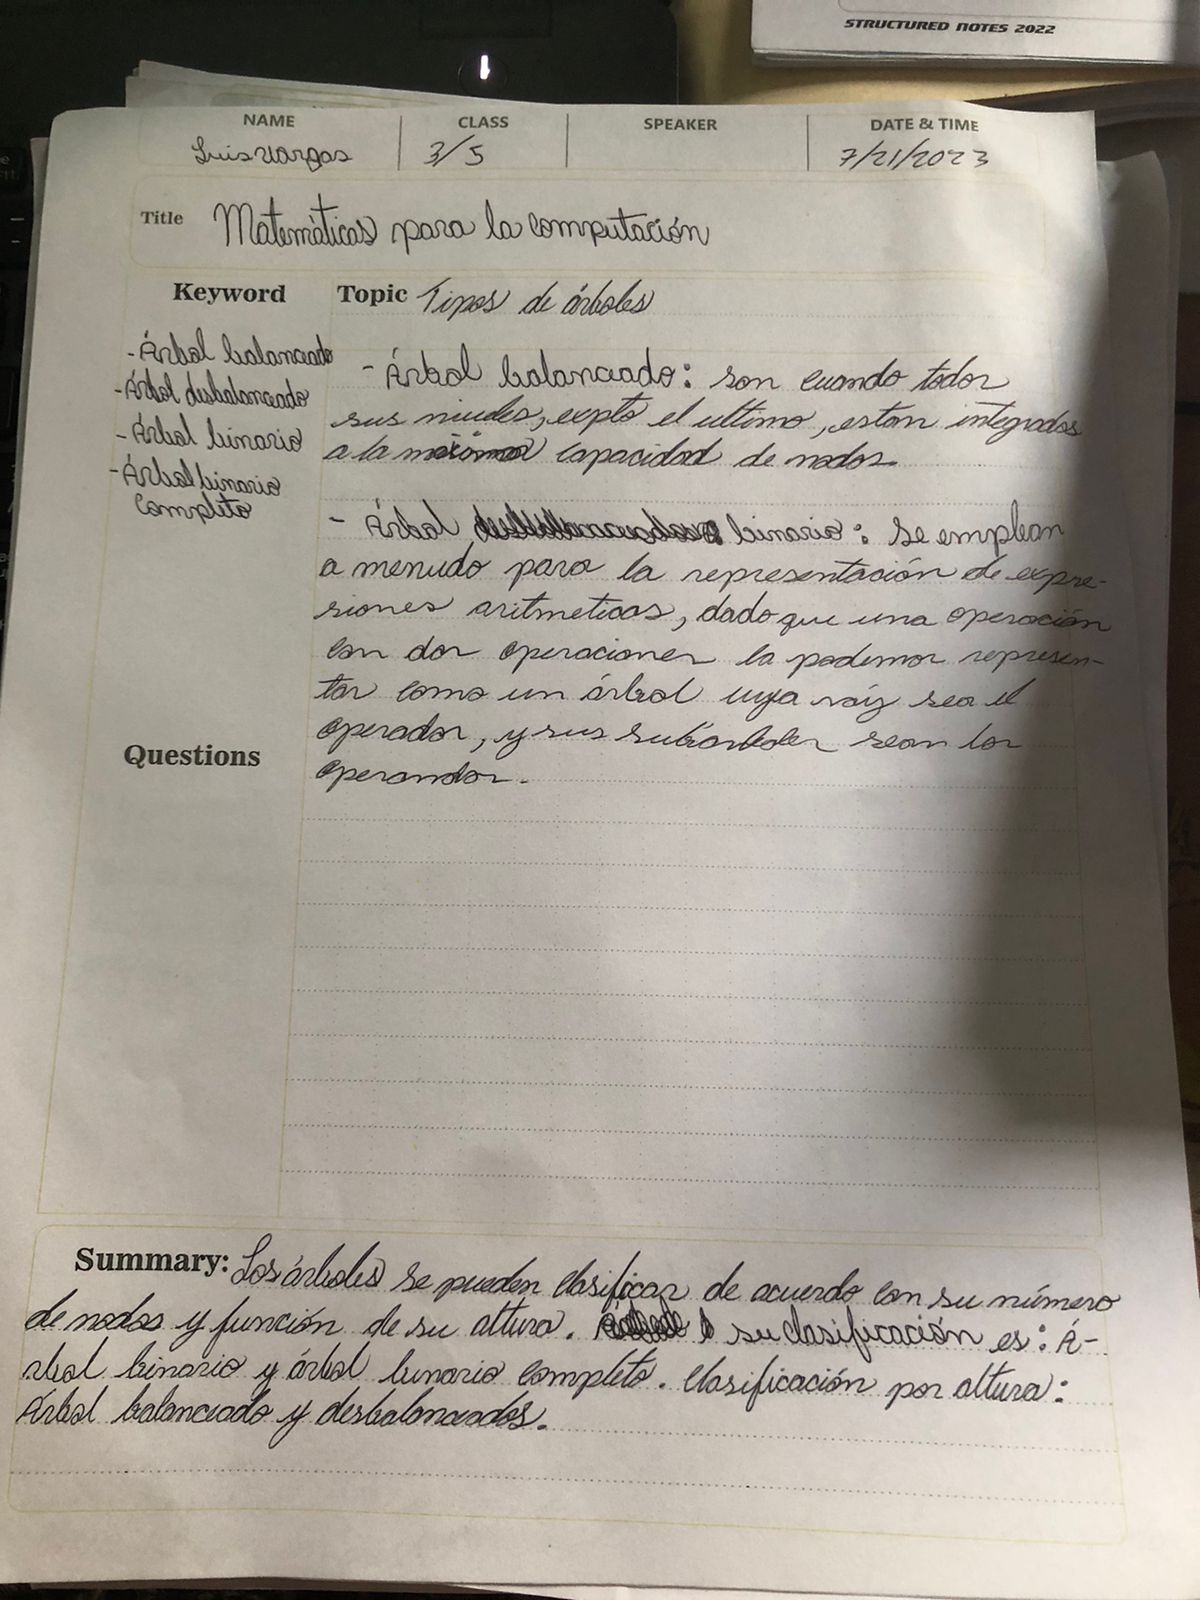 STRUCTURED NOTES 2022
NAME CLASS SPEAKER DATE & TIME
Luis Vargas 3/5 7/21/2023
Title Matemàticas para la computación
Keyword Topic Tipos de árboles
- Árbol balanceado
- Árbol desbalanceado
- Árbol binario
- Árbol binario
completo
- Árbol balanceado: son cuando todos
sus niveles, expto el ultimo, estan integrados
a la maxima capacidad de nodos.
- Árbol binario: Se emplean
a menudo para la representación de expre-
siones aritmeticas, dado que una operación
con dos operaciones la podemos represen-
tar como un árbol cuya raíz sea el
operador, y sus subárboles sean los
operandos.
Questions
Summary: Los árboles se pueden clasificar de acuerdo con su número
de nodos y función de su altura. su clasificación es: Á-
rbol binario y árbol binario completo. Clasificación por altura:
Árbol balanceado y desbalanceados.